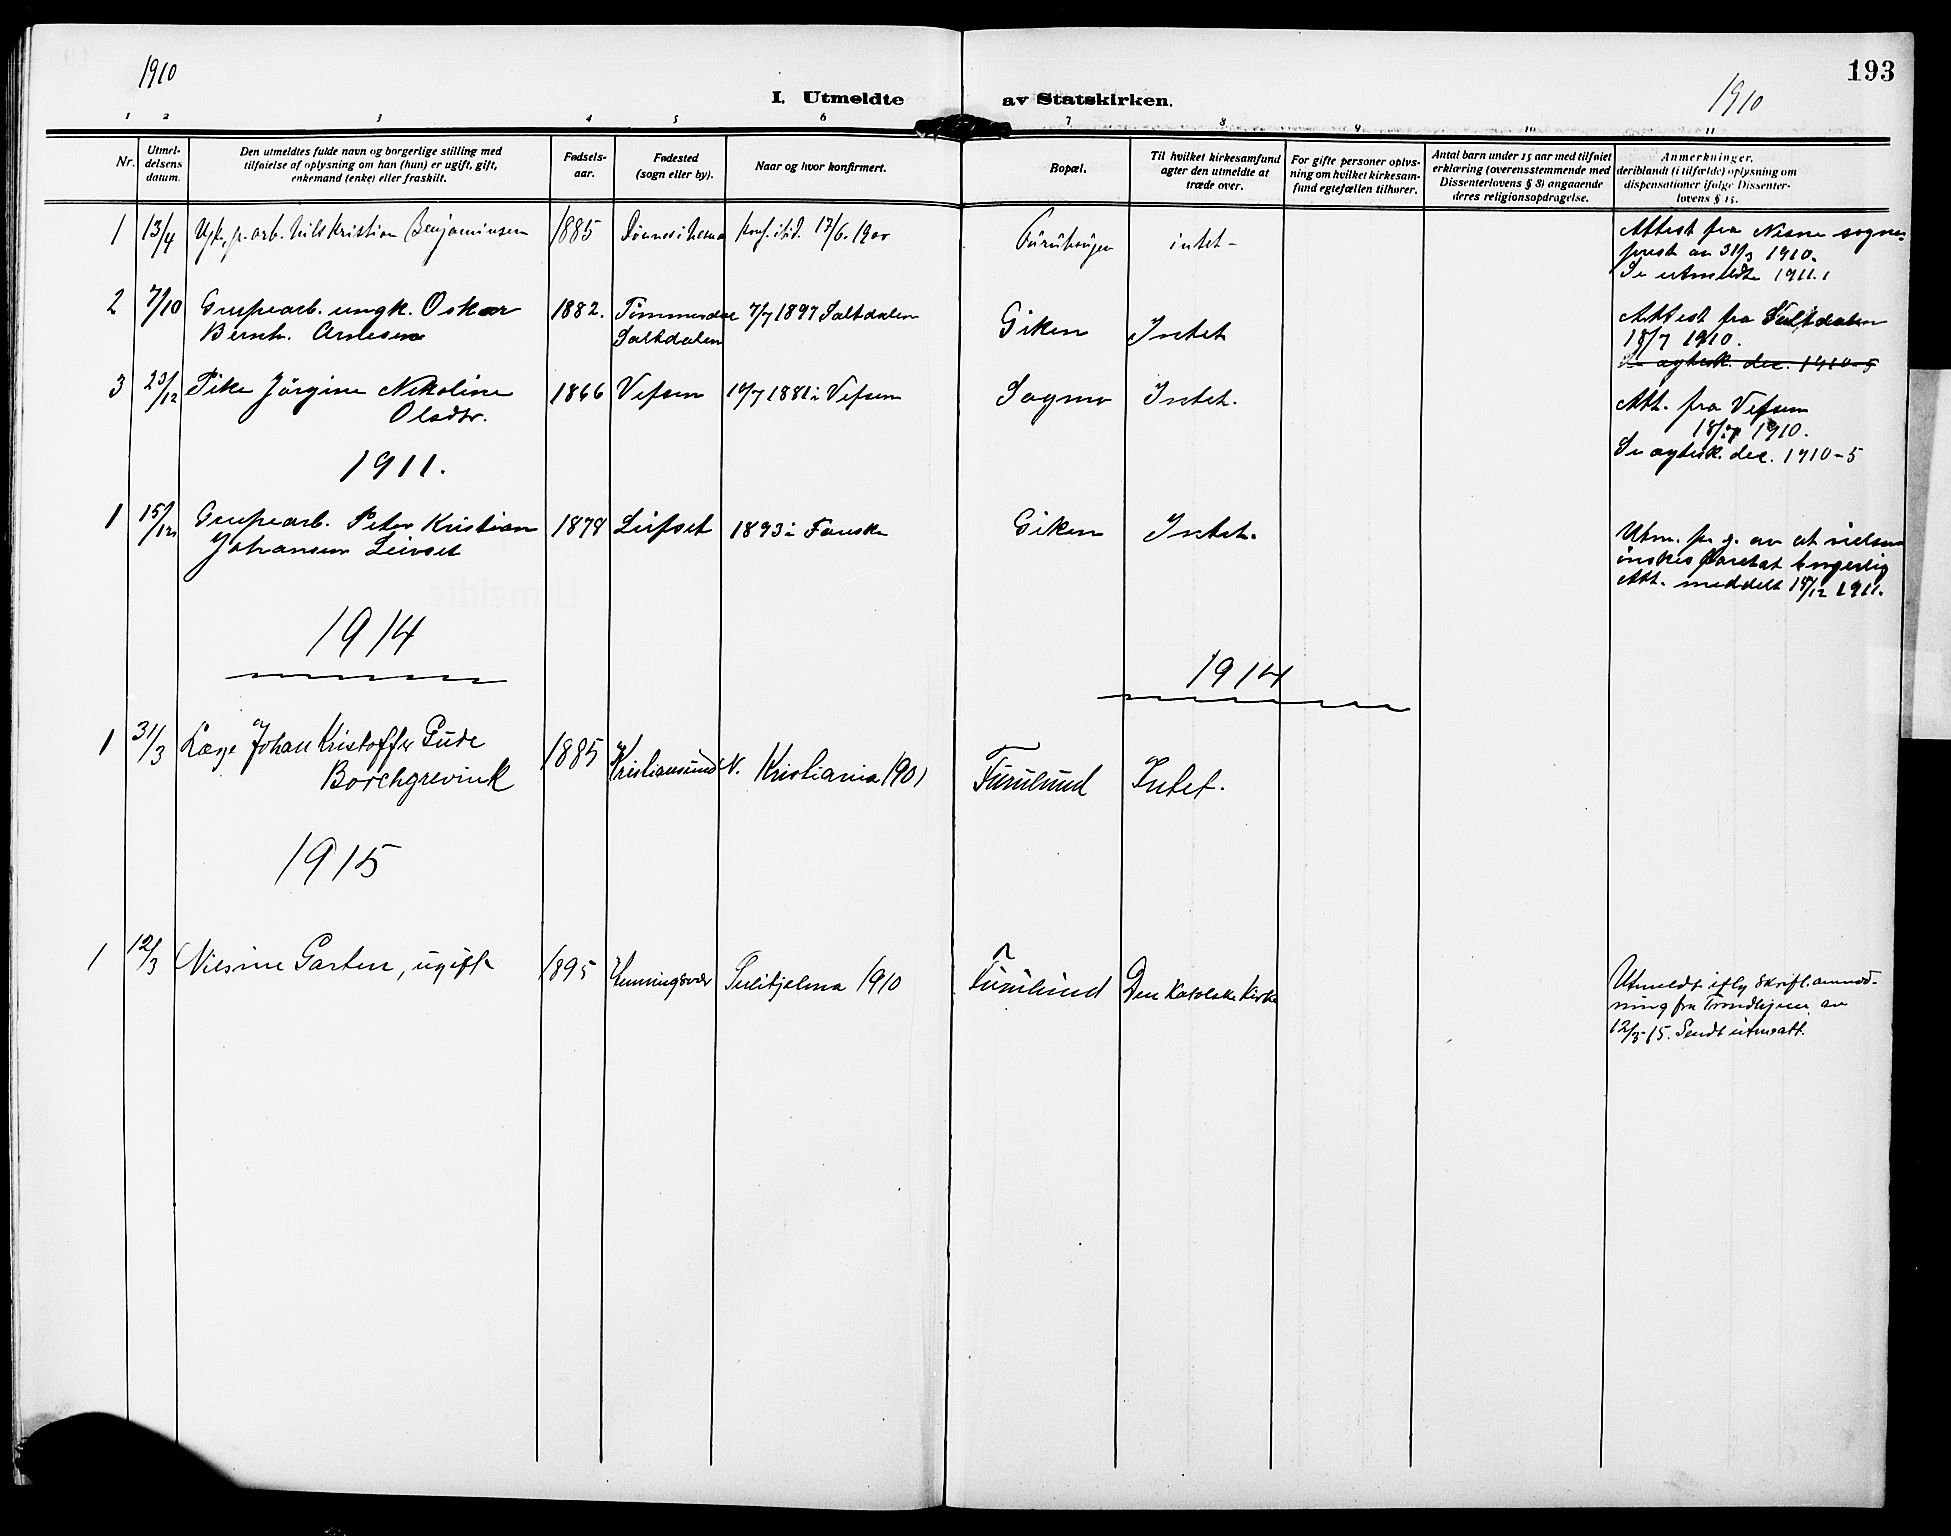 1910
193
I. Utmeldte av Statskirken.
1910
1 2 3 4 5 6 7 8 9 10 11
Nr.
Utmel-
delsens
datum.
Den utmeldtes fulde navn og borgerlige stilling med
tilføielse af oplysning om han (hun) er ugift, gift,
enkemand (enke) eller fraskilt.
Fødsels-
aar.
Fødested
(sogn eller by).
Naar og hvor konfirmert.
Bopæl.
Til hvilket kirkesamfund
agter den utmeldte at
træde over.
For gifte personer oplys-
ning om hvilket kirkesam-
fund egtefællen tilhører.
Antal barn under 15 aar med tilføiet
erklæring (overensstemmende med
Dissenterlovens § 8) angaaende
deres religionsopdragelse.
Anmerkninger,
deriblandt (i tilfælde) oplysning om
dispensationer ifølge Dissenter-
lovens § 15.
1 13/4 Ugk. arb. Nils Kristian Benjaminsen 1885 Dønnes i Nesna konf. 17/6 1900 intet
Attest fra Nesna sogne-
prest av 31/3 1910.
Se utmeldte 1911.1
2 7/10 Grubearb. ungk. Oskar 1882. 7/7 1897 Saltdalen Giken Intet
Bernh. Arnesen Saltdalen
Attest fra Saltdalen
18/7 1910.
Se ægtesk. dec. 1910-5
3 23/12 Pike Jörgine Nikoline 1866 Vefsen 10/7 1881 i Vefsen Sagmo Intet.
Olsdtr.
Att. fra Vefsen
1910.
Se ægtesk. dec. 1910-5
1911.
1 15/12 Grubearb. Peter Kristian 1878 Leifset 1893 i Fauske Giken Intet.
Johansen Leivset
Utm. p. g. av at vielsen
önskes foretat borgerlig
Att. meddelt 14/12 1911.
1914
1914
1 31/3 Læge Johan Kristoffer Gude 1885 Kristiansund N. Kristiania 1901 Furulund Intet.
Borchgrevink
1915
1 12/3 Nilsine Garten, ugift 1895 Henningsvær Sulitjelma 1910 Furulund Den Katolske Kirke
Utmeldt iflg skriftl. anmod-
ning fra Trondhjem av
12/3-15. Sendt utm.att.